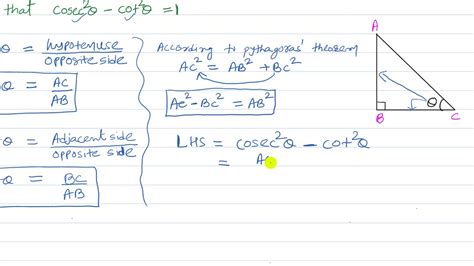 that cosec²θ - cot²θ = 1
θ = hypotenuse / opposite side
θ = AC / AB
θ = Adjacent side / opposite side
θ = BC / AB
According to pythagoras' theorem
AC² = AB² + BC²
AC² - BC² = AB²
LHS = cosec²θ - cot²θ
=
A
B
θ
C